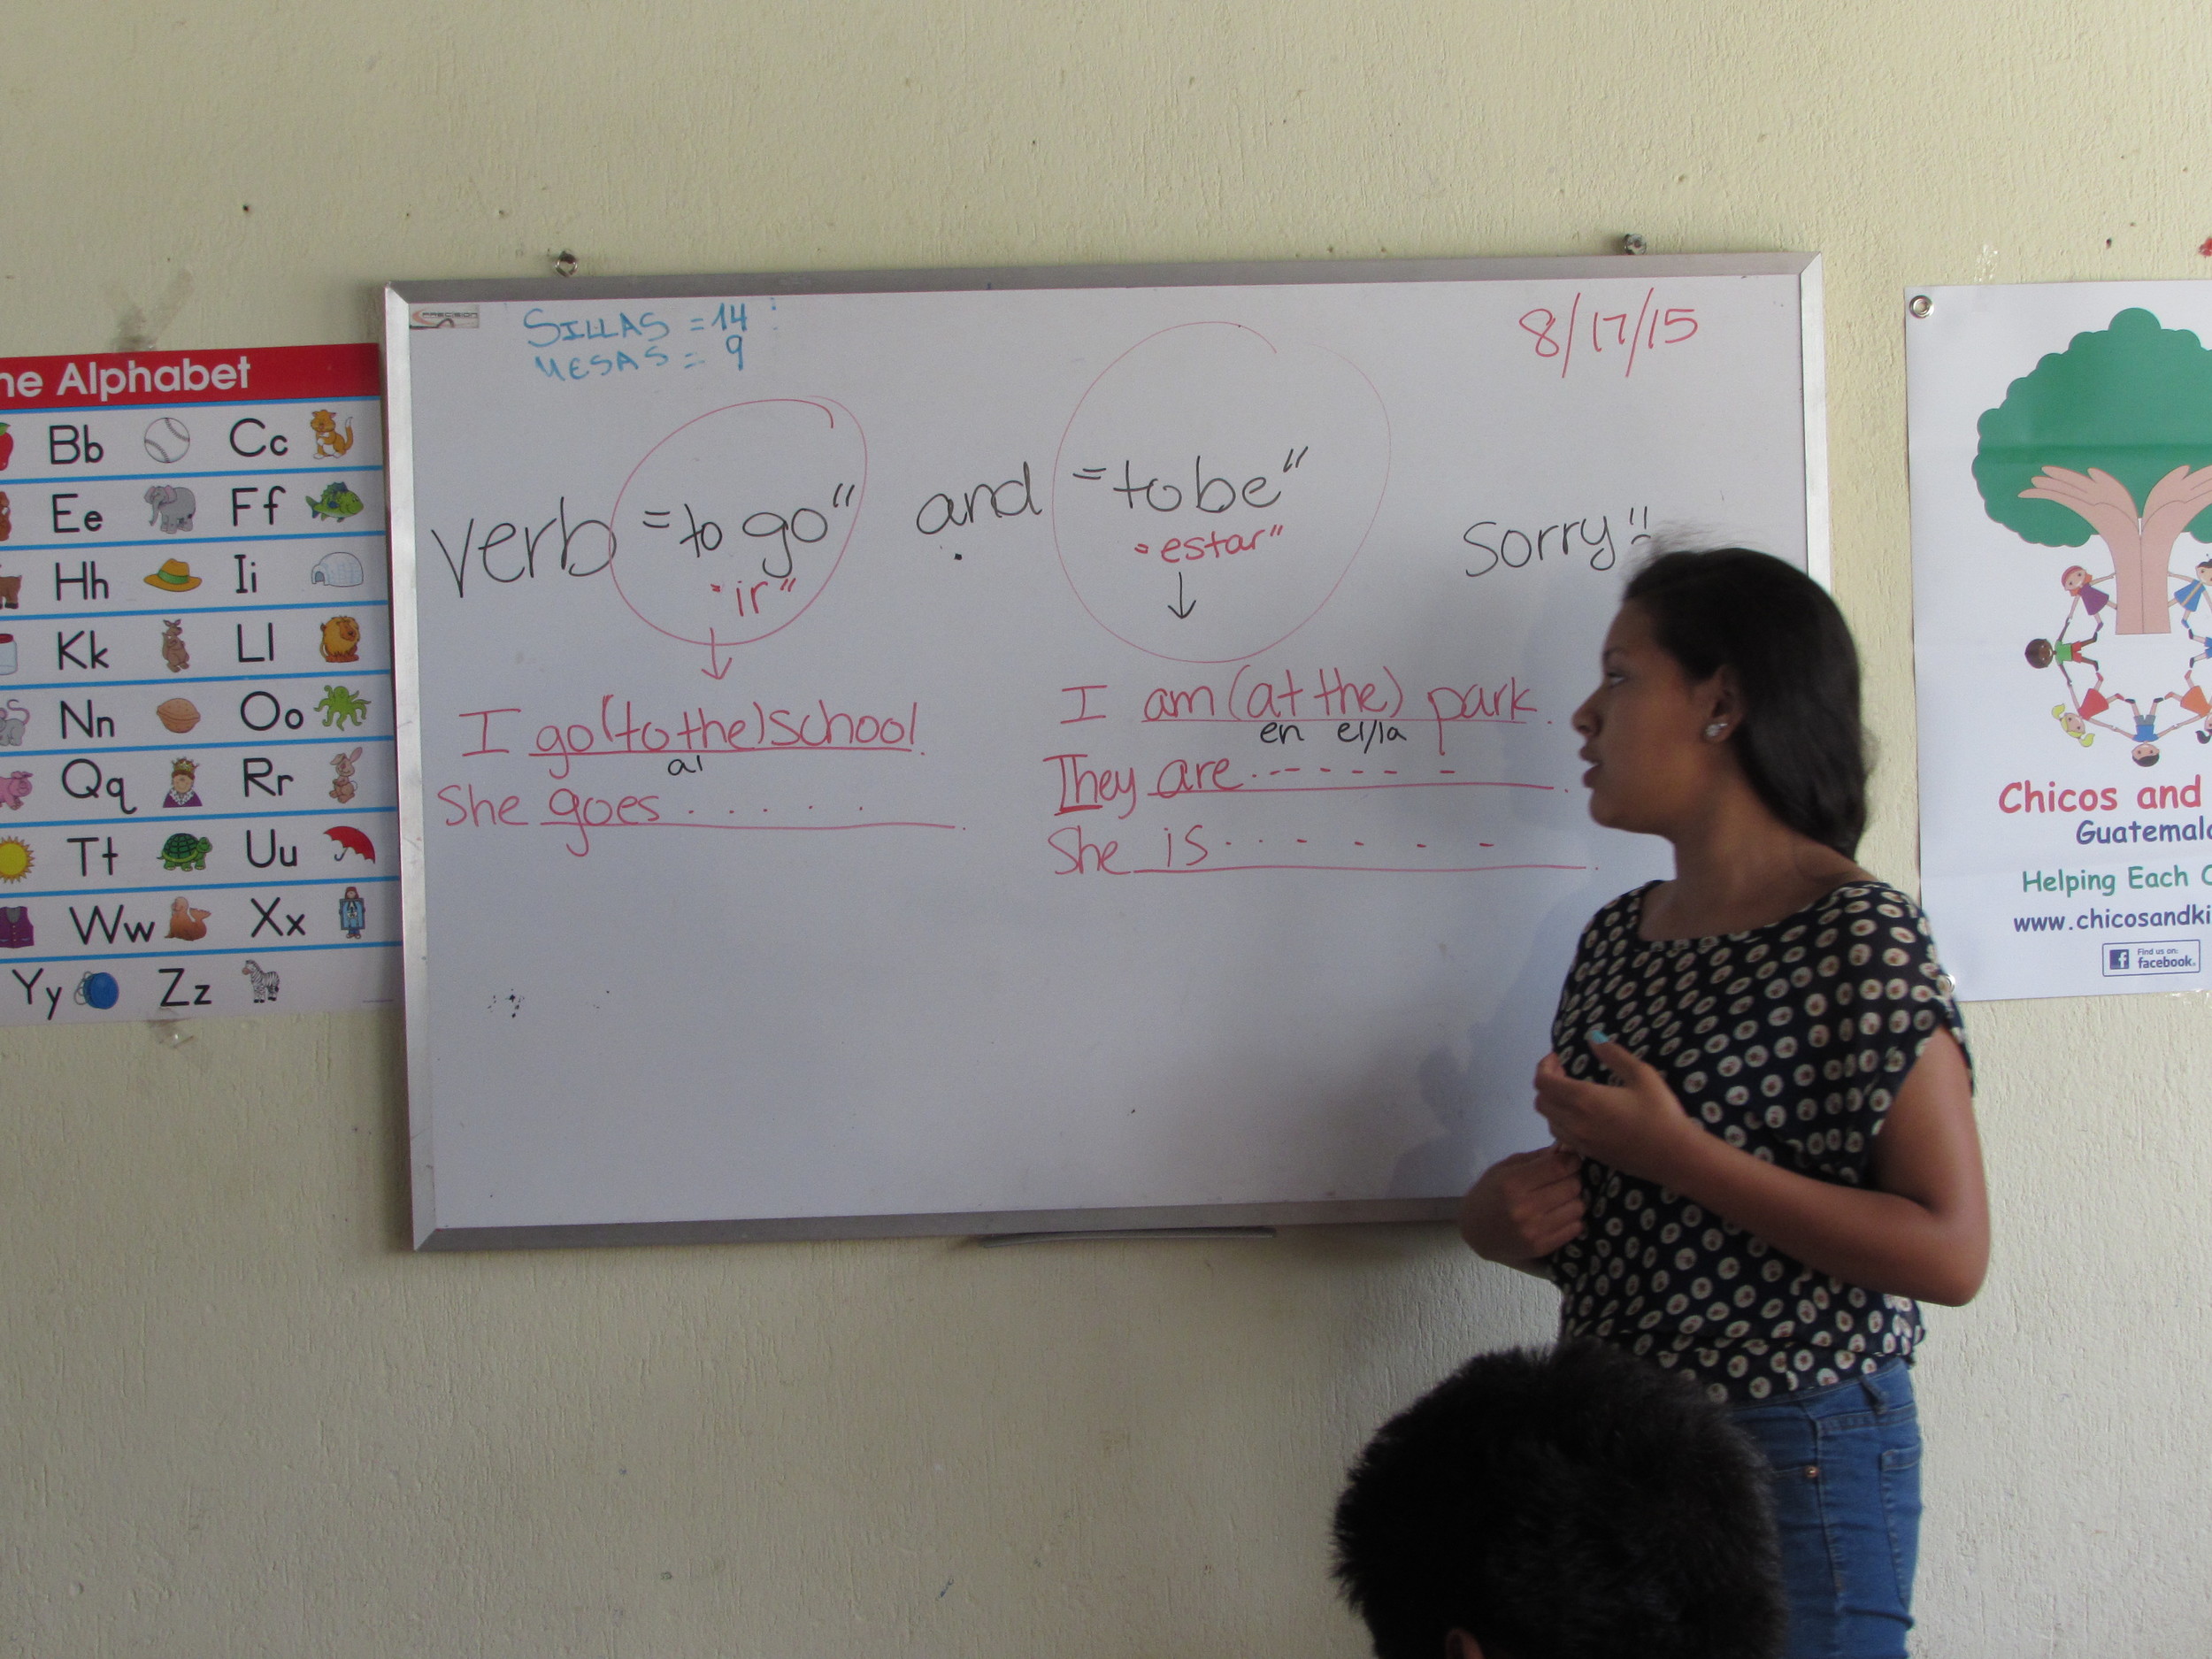 The Alphabet
Bb Cc
Ee Ff
Hh Ii
Kk Ll
Nn Oo
Qq Rr
Tt Uu
Ww Xx
Yy Zz
PRECISION
SILLAS = 14
MESAS = 9
8/17/15
verb "to go" and "to be" sorry!!
"ir"
"estar"
I go (to the) school.
al
She goes . . . . .
I am (at the) park.
en el/la
They are . - - - - - - .
She is . - - - - .
Chicos and
Guatemala
Helping Each O
www.chicosandki
Find us on:
facebook.